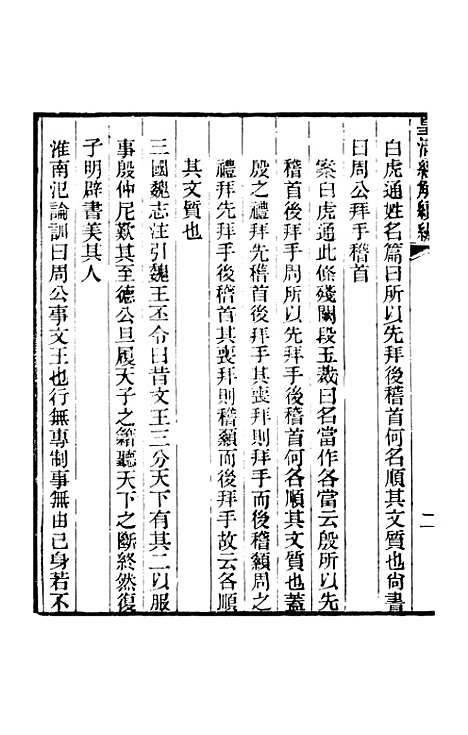 皇清經解續編
二
白虎通姓名篇曰所以先拜後稽首何名順其文質也尙書
曰周公拜手稽首
案白虎通此條殘闕段玉裁曰名當作各當云殷所以先
稽首後拜手周所以先拜手後稽首何各順其文質也蓋
殷之禮拜先稽首後拜手其喪拜則拜手而後稽顙周之
禮拜先拜手後稽首其喪拜則稽顙而後拜手故云各順
其文質也
三國魏志注引魏王丕令曰昔文王三分天下有其二以服
事殷仲尼歎其至德公旦履天子之籍聽天下之斷終然復
子明辟書美其人
淮南氾論訓曰周公事文王也行無專制事無由己身若不